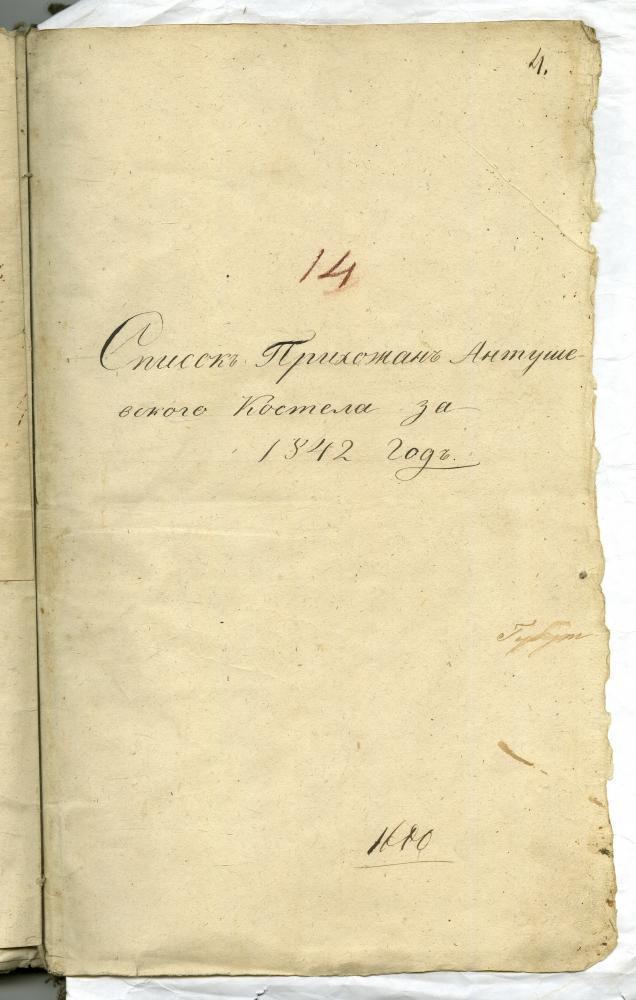 4.
14
Списокъ Прихожанъ Антуше-
вского Костела за
1842 Годъ.